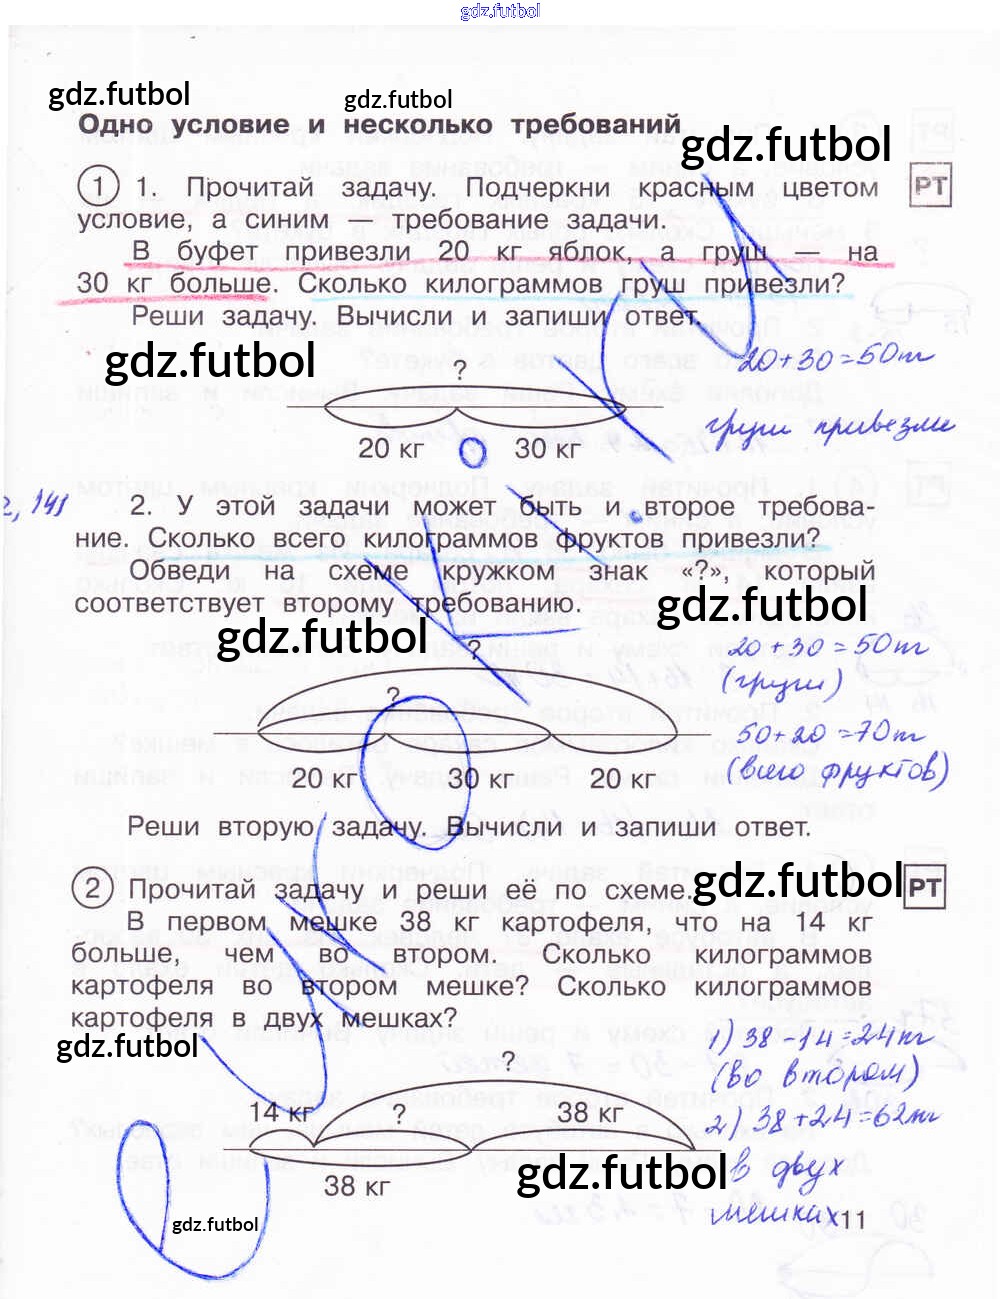 gdz.futbol
gdz.futbol
gdz.futbol
Одно условие и несколько требований
gdz.futbol
1 1. Прочитай задачу. Подчеркни красным цветом РТ
условие, а синим — требование задачи.
В буфет привезли 20 кг яблок, а груш — на
30 кг больше. Сколько килограммов груш привезли?
Реши задачу. Вычисли и запиши ответ.
gdz.futbol
20+30=50
?
груш привезли
20 кг 30 кг
2. У этой задачи может быть и второе требова-
ние. Сколько всего килограммов фруктов привезли?
Обведи на схеме кружком знак «?», который
соответствует второму требованию.
gdz.futbol
gdz.futbol
?
20+30=50
(груш)
?
50+20=70
(всего фруктов)
20 кг 30 кг 20 кг
Реши вторую задачу. Вычисли и запиши ответ.
gdz.futbol
2 Прочитай задачу и реши её по схеме. РТ
В первом мешке 38 кг картофеля, что на 14 кг
больше, чем во втором. Сколько килограммов
картофеля во втором мешке? Сколько килограммов
картофеля в двух мешках?
gdz.futbol
1) 38-14=24
(во втором)
?
14 кг ? 38 кг
2) 38+24=62
38 кг
gdz.futbol
в двух
мешках
gdz.futbol
11